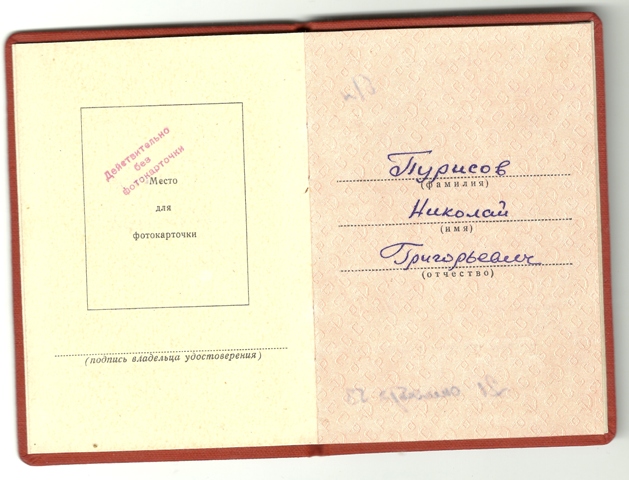 Действительно
без
фотокарточки
Место
для
фотокарточки
(подпись владельца удостоверения)
Пурисов
(фамилия)
Николай
(имя)
Григорьевич
(отчество)